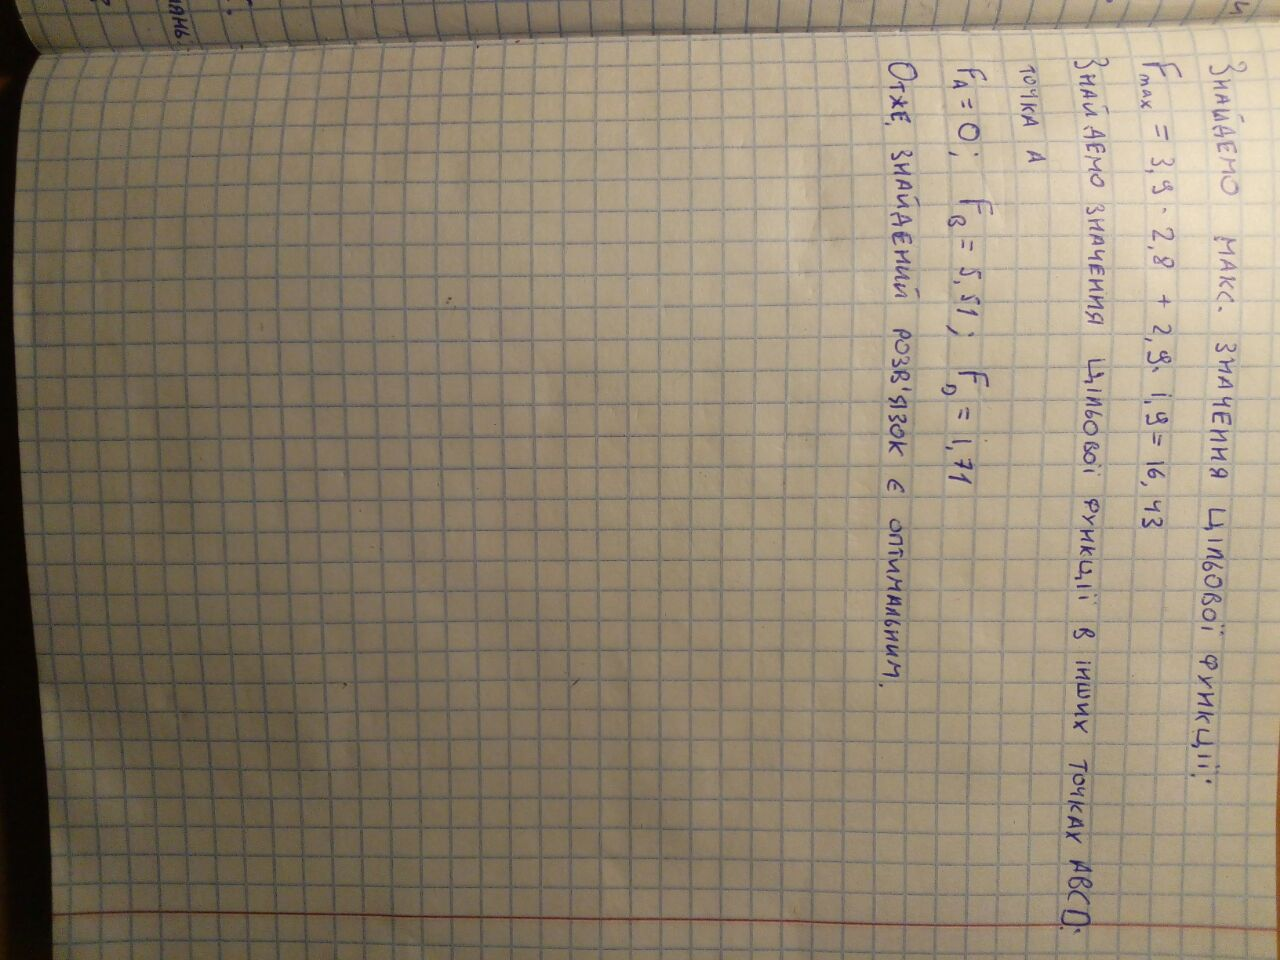 Знайдемо макс. значення цільової функції:
Fmax = 3,9 · 2,8 + 2,9 · 1,9 = 16,43
Знайдемо значення цільової функції в інших точках ABCD:
точка A
FA = 0; FB = 5,51; FD = 1,71
Отже, знайдений розв'язок є оптимальним.